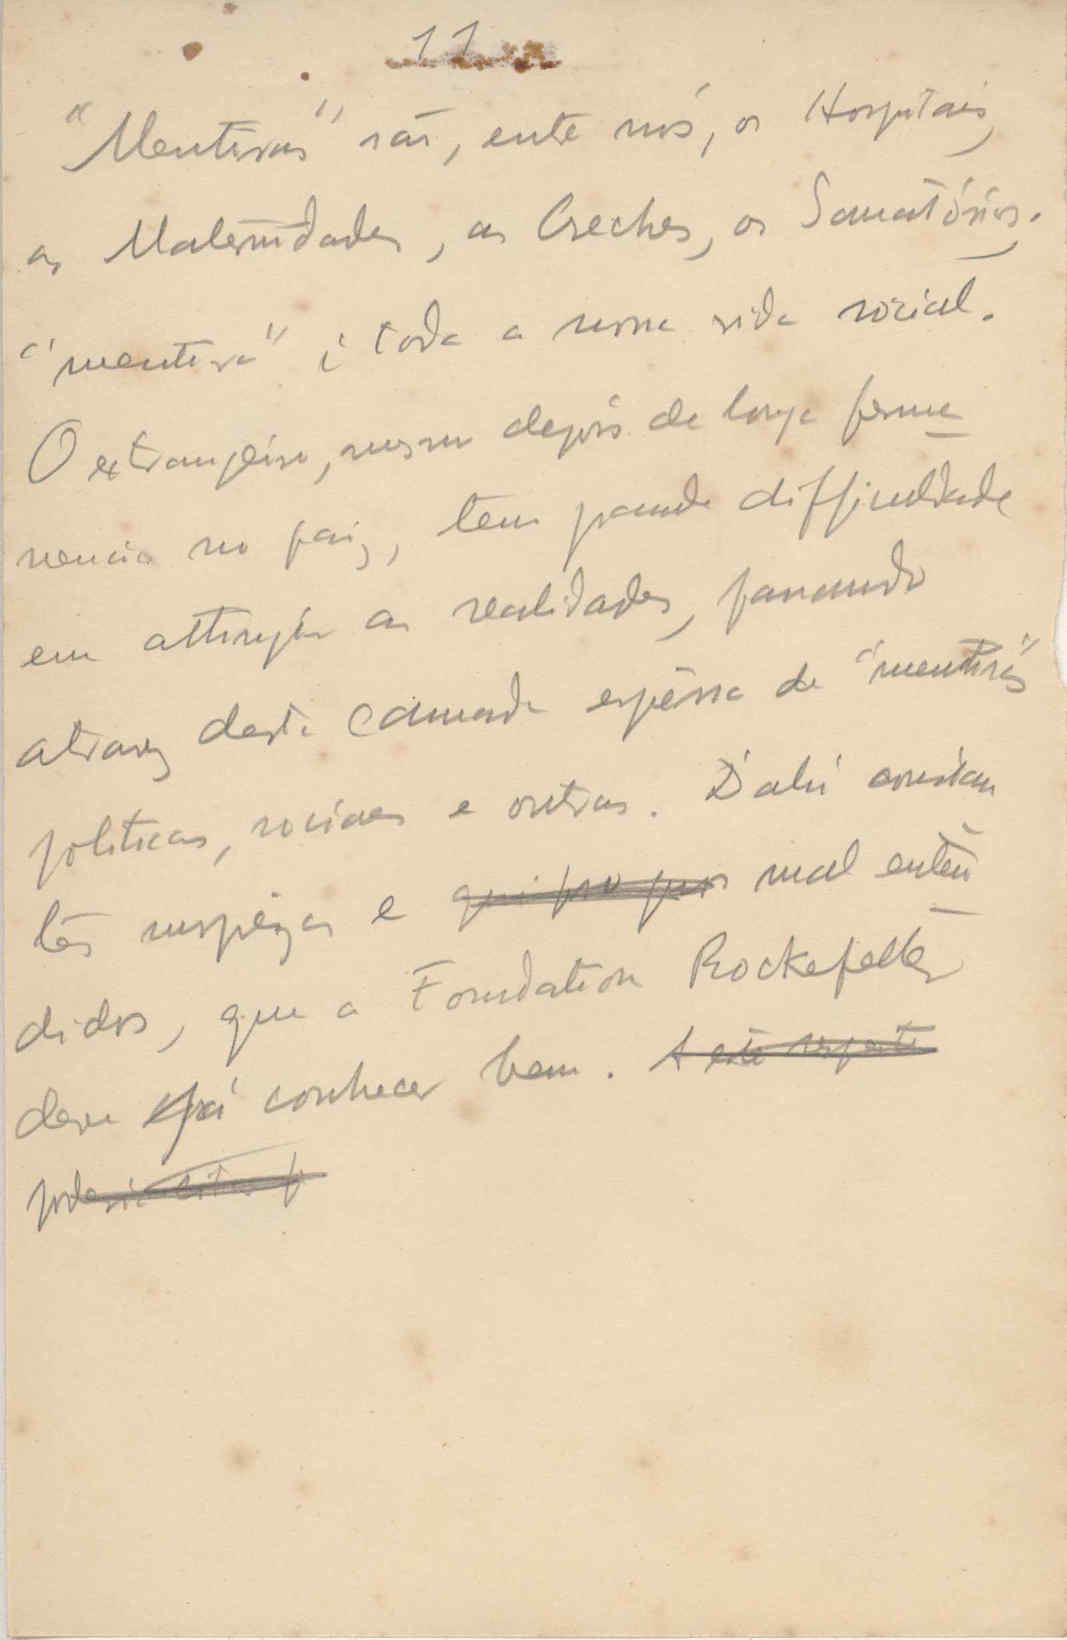 11
"Mentiras" são, entre nós, os Hospitais,
as Maternidades, as Creches, os Sanatórios.
"mentira" é toda a nossa vida social.
O extrangeiro, mesmo depois de longa perma
nencia no paiz, tem grande difficuldade
em attingir as realidades, passando
atravez desta camada espêssa de "mentiras"
politicas, sociaes e outras. D'ahi constan
tes surprêzas e qui pro quos mal enten
didos, que a Foundation Rockefeller
deve já conhecer bem. A este respeito
poderia citar